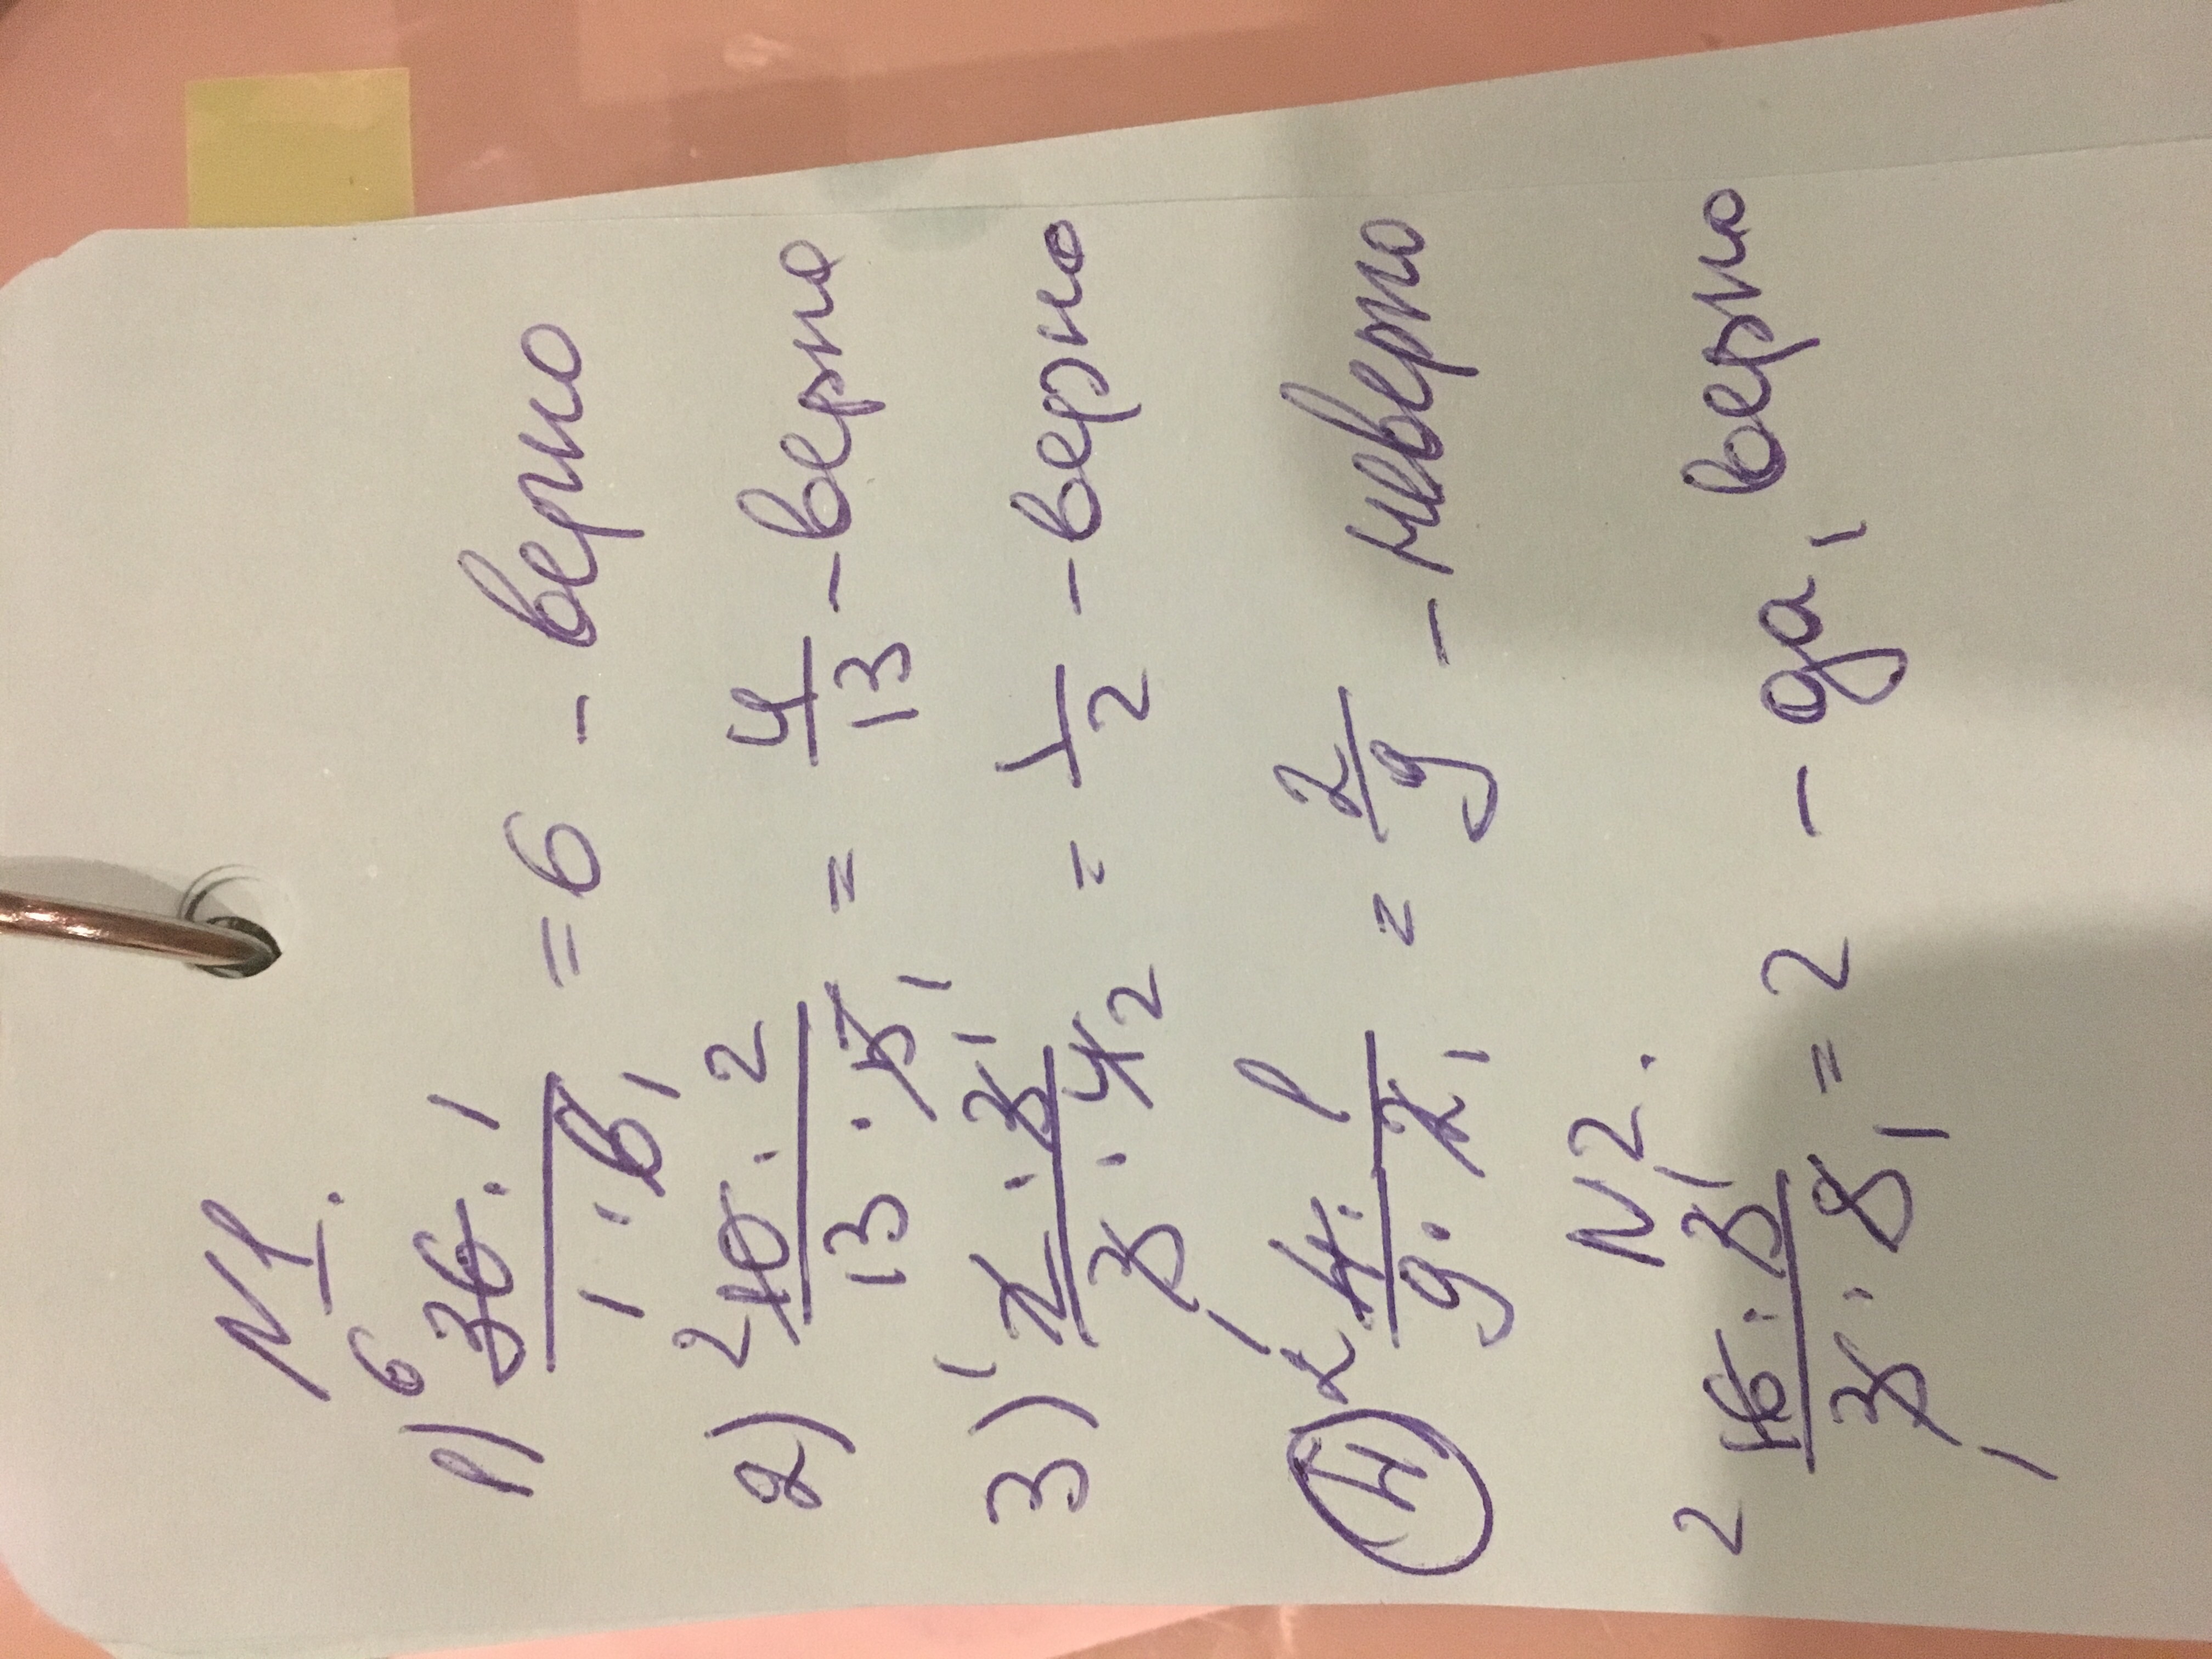 N1.
1) 6 36 · 1 / 1 · 6 1 = 6 - верно
2) 2 10 · 2 / 13 · 5 1 = 4/13 - верно
3) 1 2 · 3 1 / 3 · 4 2 = 1/2 - верно
4 2 4 · 1 / 9 · 2 1 = 2/9 - неверно
N2.
2 16 · 3 1 / 3 1 · 8 1 = 2 - да, верно